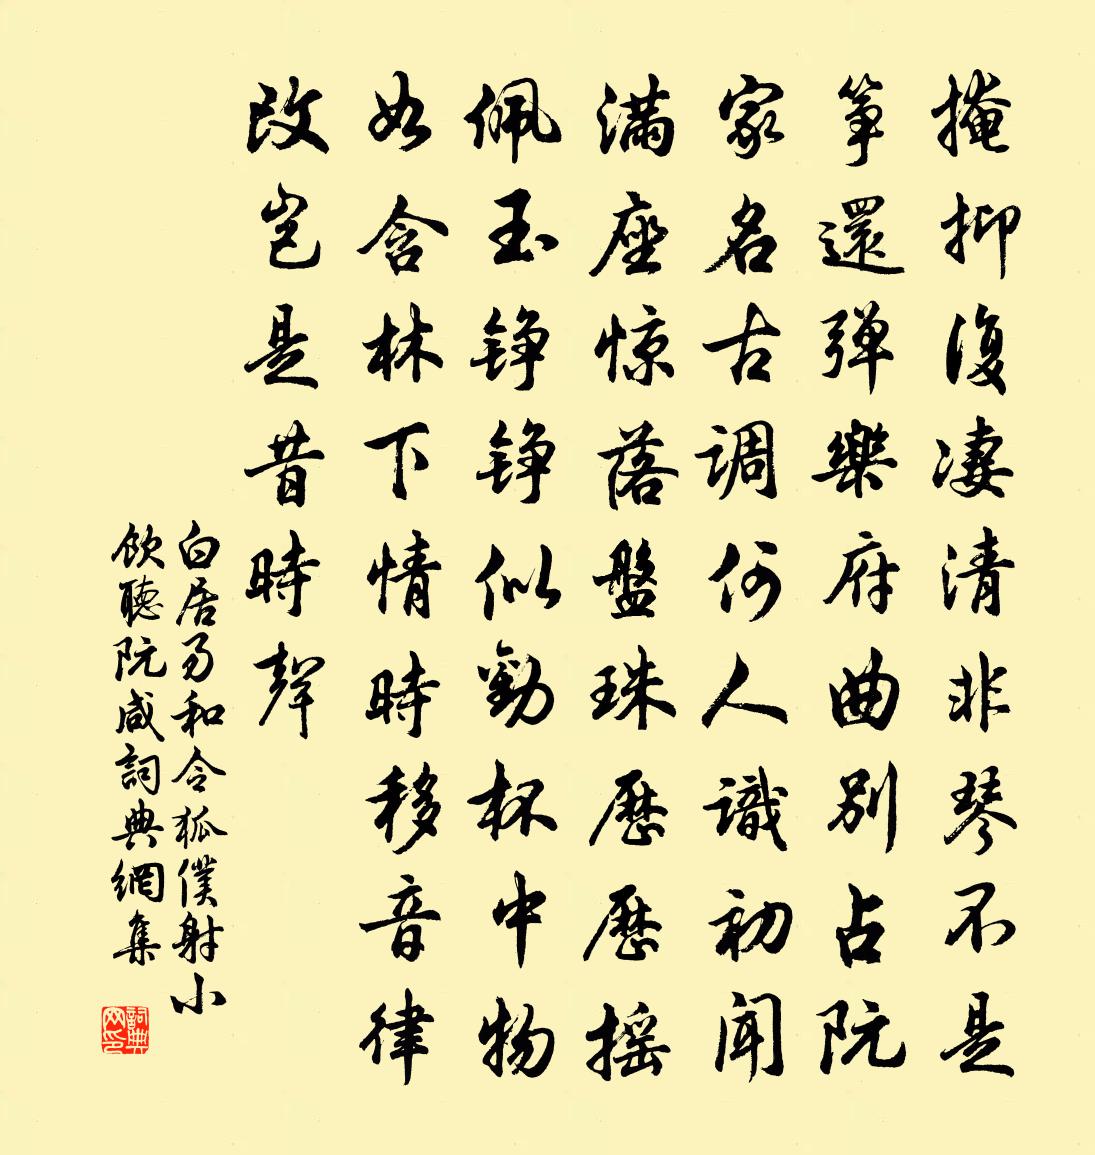 掩抑復凄清非琴不是
筝還弹樂府曲別占阮
家名古調何人識初闻
满座惊落盤珠歷歷摇
佩玉铮铮似勸杯中物
如含林下情時移音律
改岂是昔時聲
白居易和令狐僕射小
飲聽阮咸詞典網集
詞典网印